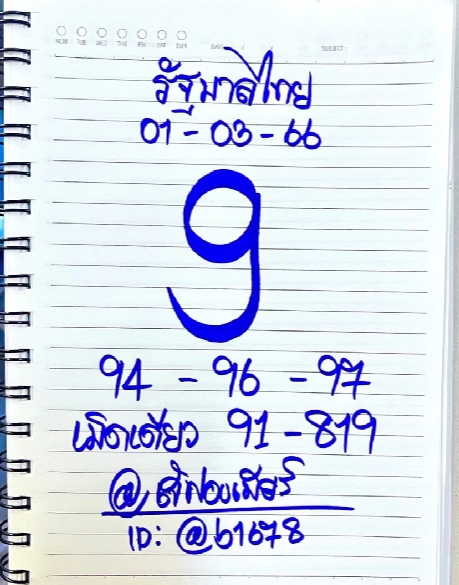 MON TUE WED THU FRI SAT SUN
SUBJECT:
รัฐบาลไทย
01-03-66
9
94 - 96 - 97
เม็ดเดียว 91-819
ID: @b1678